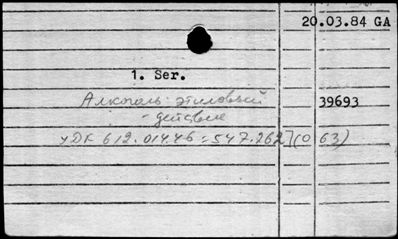 20.03.84 GA
1. Ser.
Алкоголь этиловый 39693
- действие
УДК 612.014.46:547.262](063)